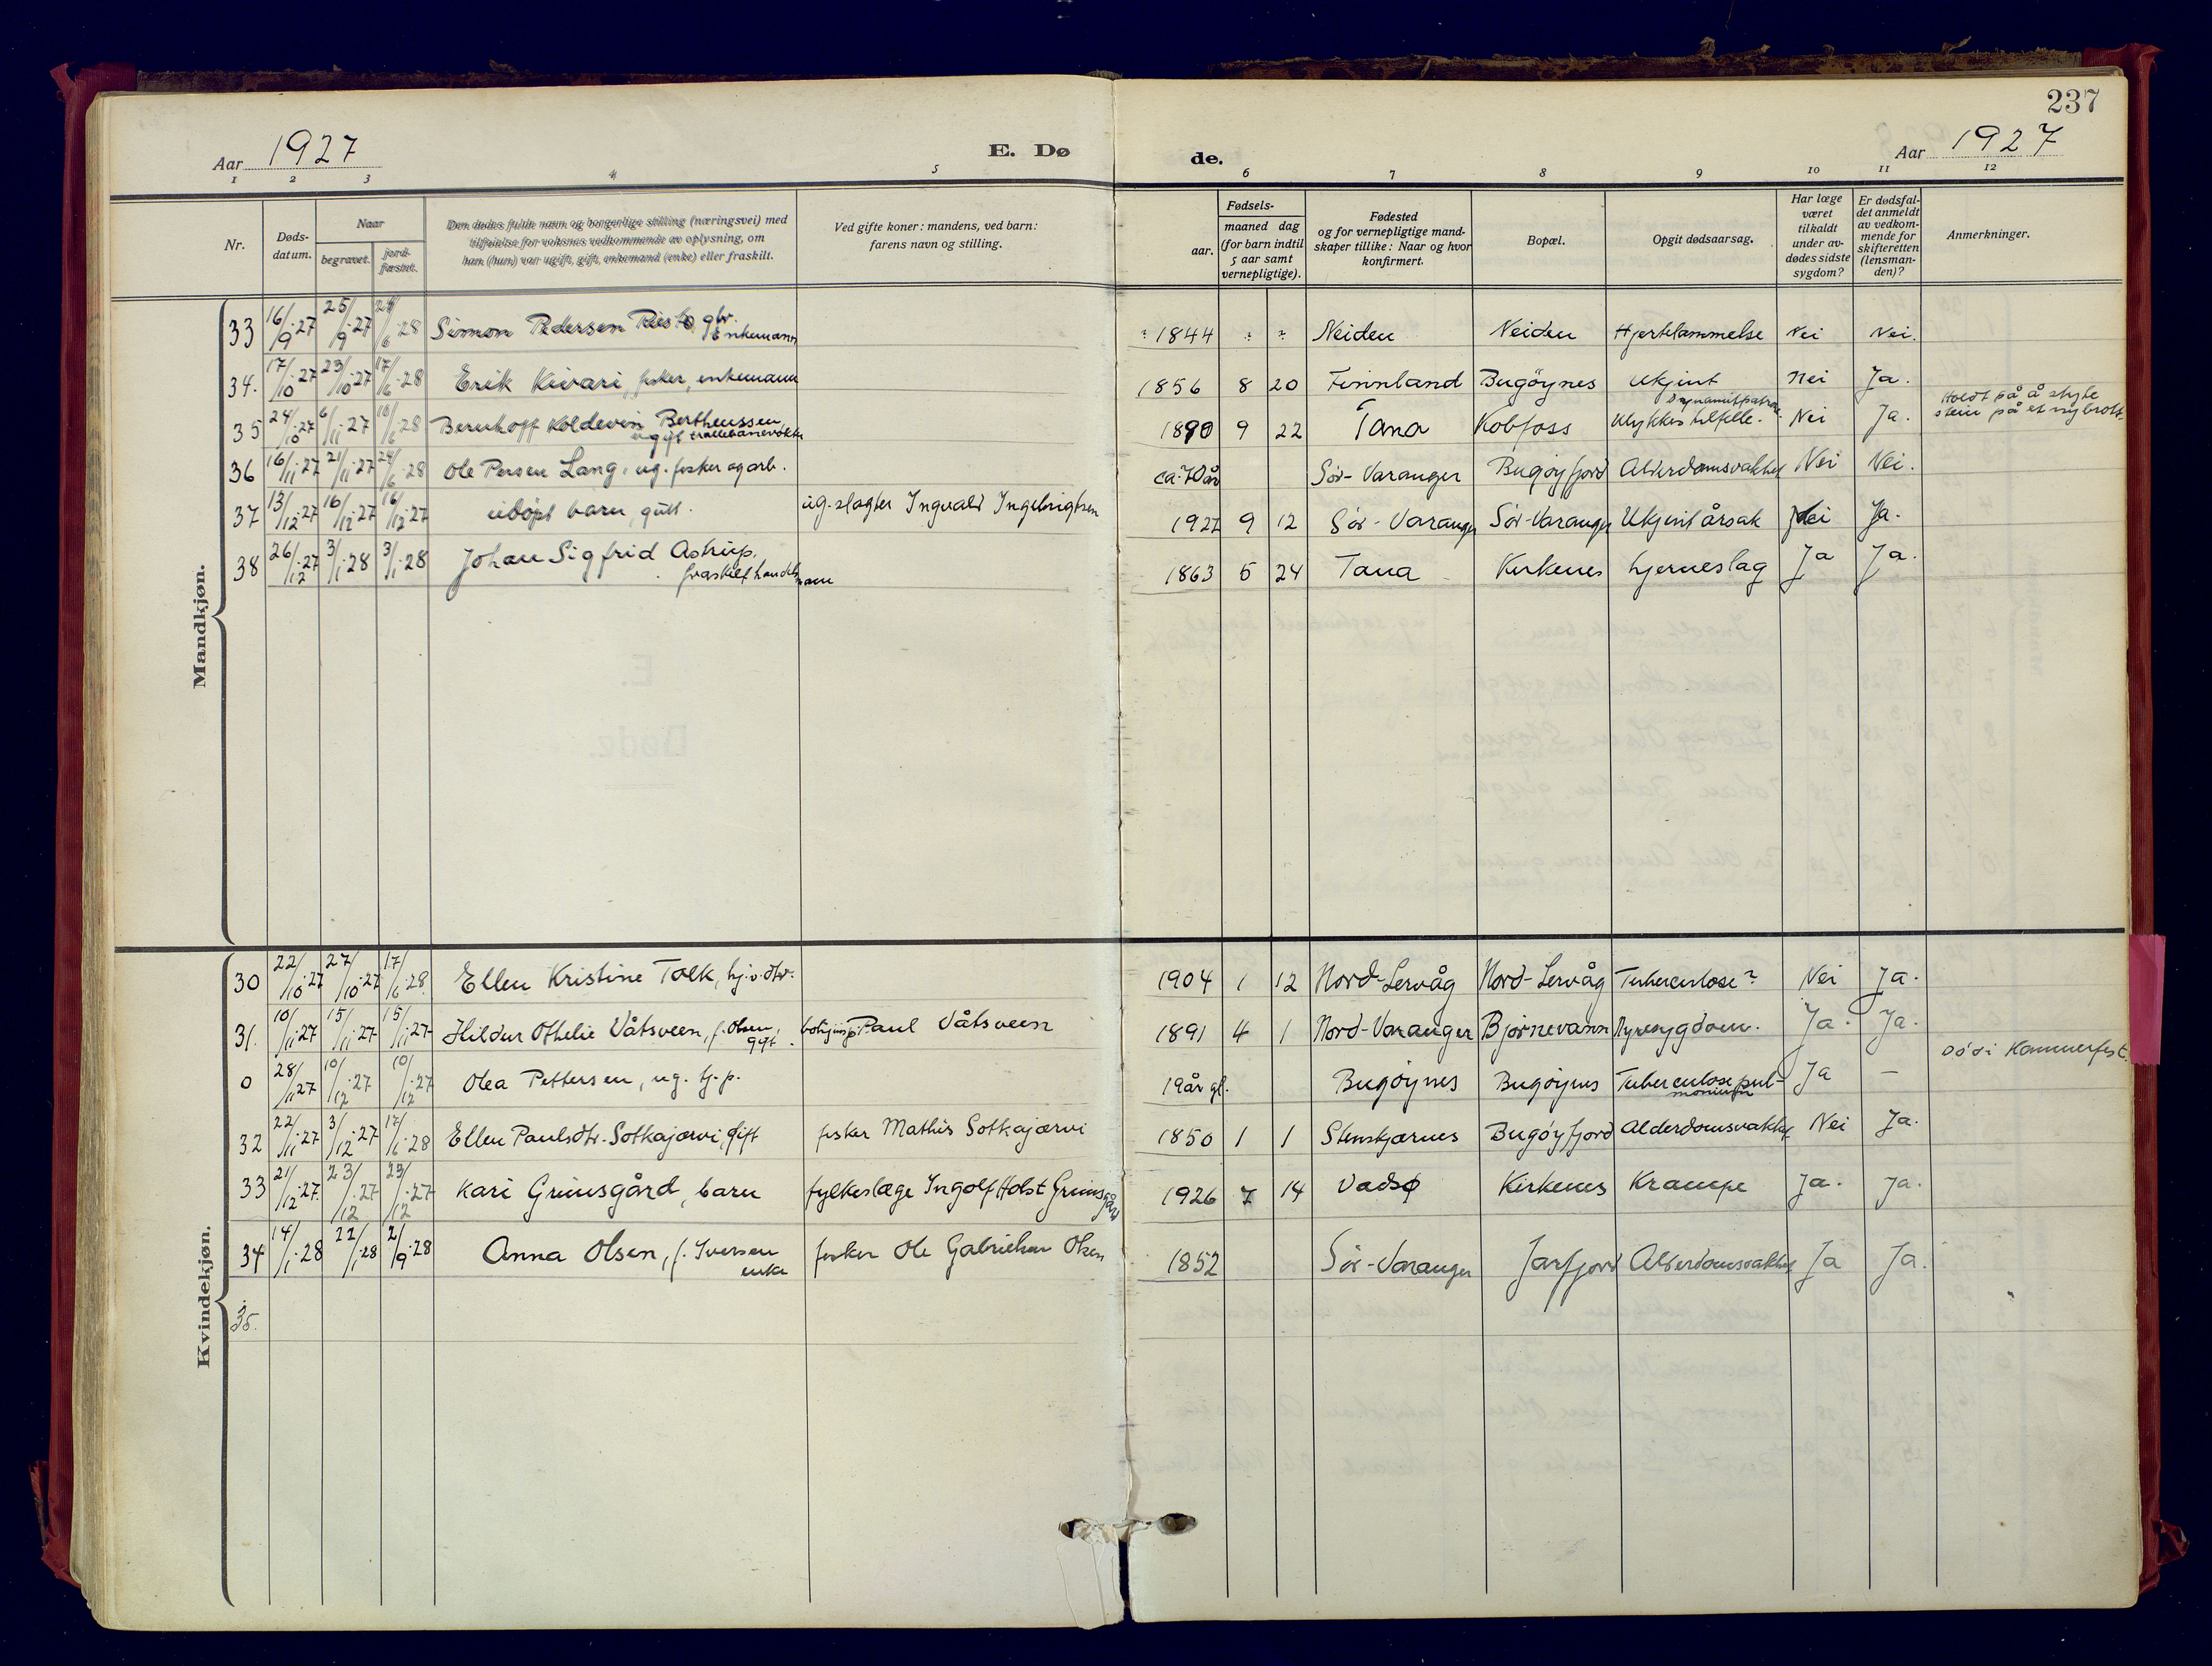 237
Aar 1927 E. Dø de. Aar 1927
1 2 3 4 5 6 7 8 9 10 11 12
Nr.
Døds-datum.
Naar
begravet.
jord-fæstet.
Den dødes fulde navn og borgerlige stilling (næringsvei) med
tilføielse for voksnes vedkommende av oplysning, om
han (hun) var ugift, gift, enkemand (enke) eller fraskilt.
Ved gifte koner: mandens, ved barn:
farens navn og stilling.
Fødsels-
aar.
maaned dag
(for barn indtil
5 aar samt
vernepligtige).
Fødested
og for vernepligtige mand-
skaper tillike: Naar og hvor
konfirmert.
Bopæl.
Opgit dødsaarsag.
Har læge
været
tilkaldt
under av-
dødes sidste
sygdom?
Er dødsfal-
det anmeldt
av vedkom-
mende for
skifteretten
(lensman-
den)?
Anmerkninger.
Mandkjøn.
33 16/9-27 25/9-27 /6-28 Simon Pedersen gbr. Enkemann ?1844 ? ? Neiden Neiden Hjertelammelse Nei Nei.
34. 17/10-27 23/10-27 17/6-28 Erik Kivari, fisker, enkemann 1856 8 20 Finnland Bugøynes Ukjent Nei Ja.
35 24/10-27 6/11-27 10/6-28 Bernhoff Koldevin Bertheussen, ugift trallebanevokter 1890 9 22 Tana Kobfoss Ulykkestilfelle. Dynamitpatron Nei Ja. Holdt på å skyte stein på et nybrott.
36 16/11-27 21/11-27 24/6-28 Ole Persen Lang, ug. fisker og arb. ca. 70 år Sør-Varanger Bugøyfjord Alderdomsvakhet Nei Nei.
37 13/12-27 16/12-27 16/12-27 udøpt barn, gutt. ug. slagter Ingvald Ingebrigtsen 1927 9 12 Sør-Varanger Sør-Varanger Ukjent årsak Nei Ja.
38 26/12-27 3/1-28 3/1-28 Johan Sigfrid Astrup. fraskilt handelsmann 1863 5 24 Tana Kirkenes hjerneslag Ja Ja.
Kvindekjøn.
30 22/10-27 27/10-27 17/6-28 Ellen Kristine Tolk, hj.v. dtr. 1904 1 12 Nord-Lervåg Nord-Lervåg Tuberculose? Nei Ja.
31. 10/11-27 15/11-27 15/11-27 Hildur Othelie Våtsveen, f. Olsen, gift. Paul Våtsveen 1891 4 1 Nord-Varanger Bjørnevann Nyresygdom. Ja. Ja.
0 28/11-27 10/12-27 10/12-27 Olea Pettersen, ug. tj.p. 19 år gl. Bugøynes Bugøynes Tuberculose pulmonum Ja - Død i Hammerfest.
32 22/11-27 3/12-27 17/6-28 Ellen Paulsdtr. Sotkajærvi, gift fisker Mathis Sotkajærvi 1850 1 1 Stenskjærnes Bugøyfjord Alderdomsvakhet Nei Ja.
33 21/12-27. 23/12-27 23/12-27 Kari Grimsgård, barn fylkeslæge Ingolf Holst Grimsgård 1926 7 14 Vadsø Kirkenes Krampe Ja. Ja.
34 14/1-28 22/1-28 2/9-28 Anna Olsen, f. Iversen enke fisker Ole Gabrielsen Olsen 1852 Sør-Varanger Jarfjord Alderdomsvakhet Ja Ja.
35.